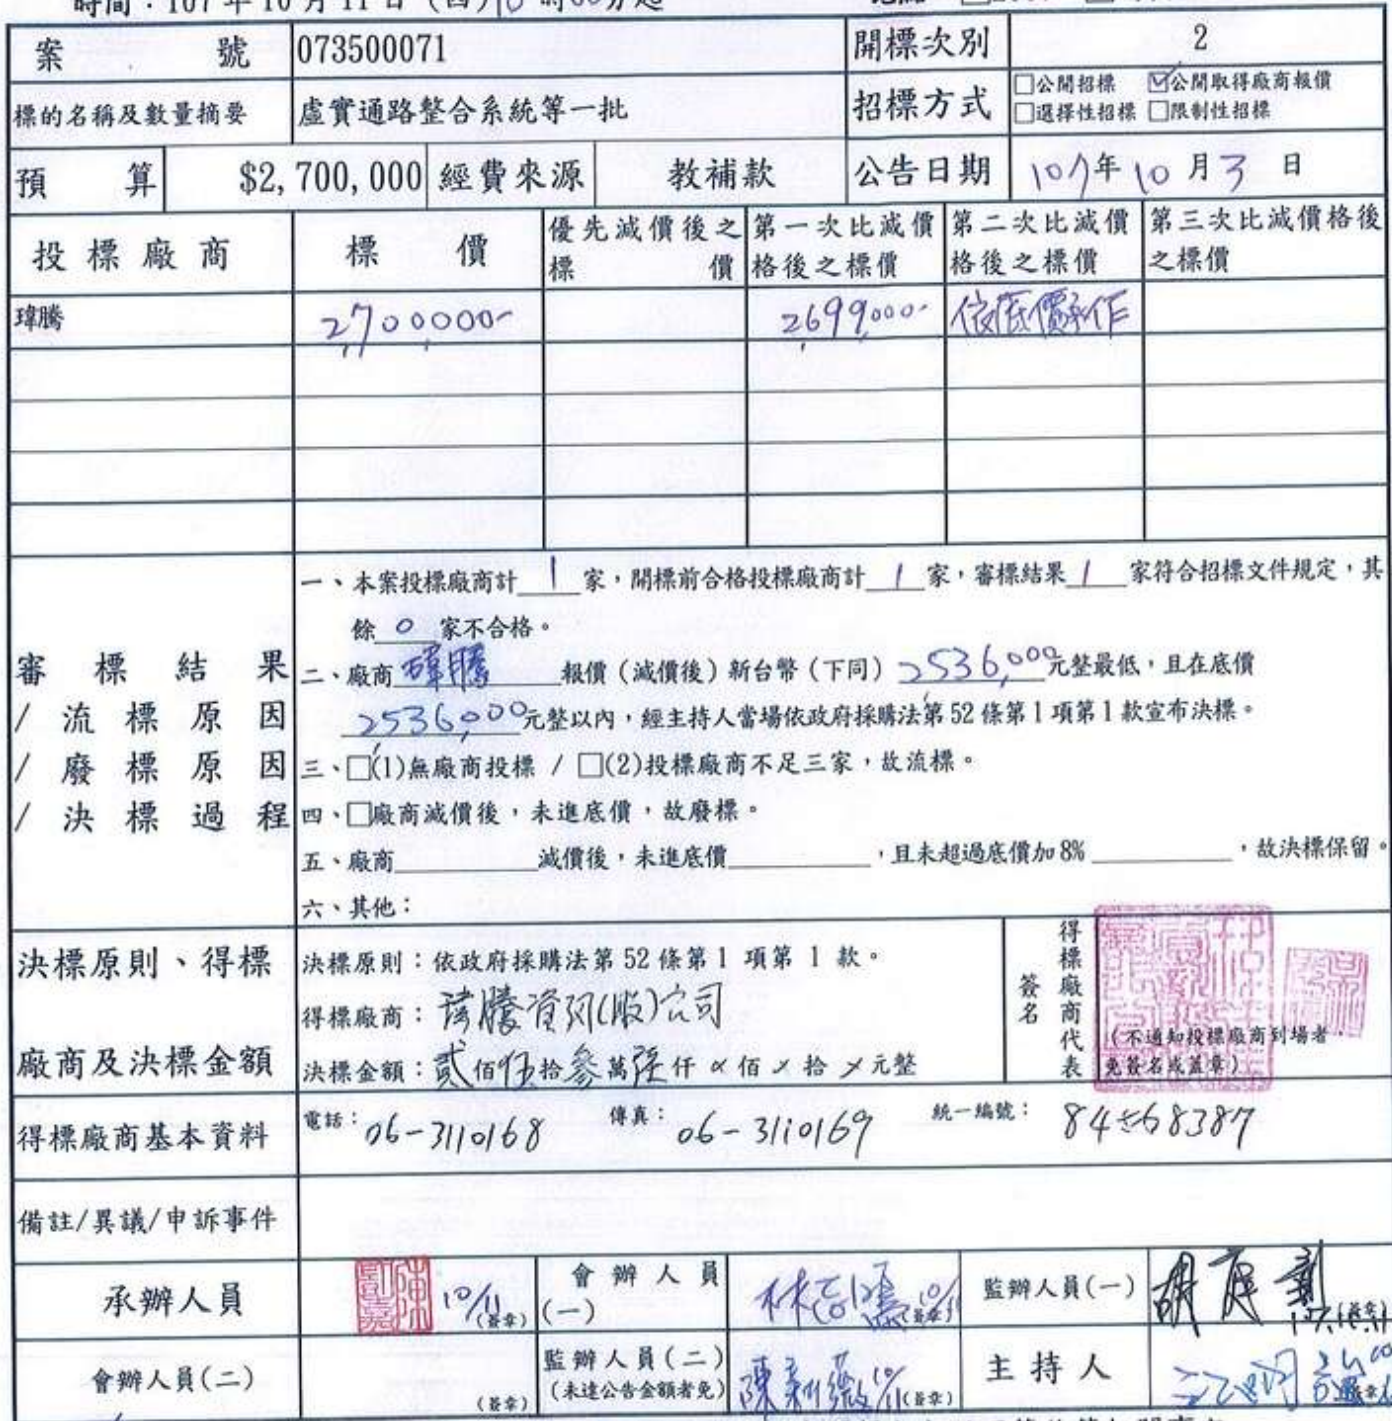 時間：107年10月11日（四）10時00分起
案號 073500071 開標次別 2
標的名稱及數量摘要 虛實通路整合系統等一批 招標方式 □公開招標 ☑公開取得廠商報價
□選擇性招標 □限制性招標
預算 $2,700,000 經費來源 教補款 公告日期 107年10月3日
投標廠商 標價 優先減價後之標價 第一次比減價格後之標價 第二次比減價格後之標價 第三次比減價格後之標價
瑋騰 2,700,000- 2,699,000- 依底價承作
審標結果
/流標原因
/廢標原因
/決標過程
一、本案投標廠商計 1 家，開標前合格投標廠商計 1 家，審標結果 1 家符合招標文件規定，其
餘 0 家不合格。
二、廠商 瑋騰 報價（減價後）新台幣（下同）2,536,000元整最低，且在底價
2,536,000元整以內，經主持人當場依政府採購法第52條第1項第1款宣布決標。
三、□(1)無廠商投標 / □(2)投標廠商不足三家，故流標。
四、□廠商減價後，未進底價，故廢標。
五、廠商 減價後，未進底價 ，且未超過底價加8% ，故決標保留。
六、其他：
決標原則、得標
廠商及決標金額
決標原則：依政府採購法第52條第1項第1款。
得標廠商：瑋騰資訊(股)公司
決標金額：貳佰伍拾參萬陸仟×佰×拾×元整
得標廠商代表
簽名
（不通知投標廠商到場者，
免簽名或蓋章）
得標廠商基本資料 電話：06-3110168 傳真：06-3110169 統一編號：84568387
備註/異議/申訴事件
承辦人員 10/11 (簽章) 會辦人員(一) (簽章) 監辦人員(一) (簽章)
會辦人員(二) (簽章) 監辦人員(二)
(未達公告金額者免) 10/11 (簽章) 主持人